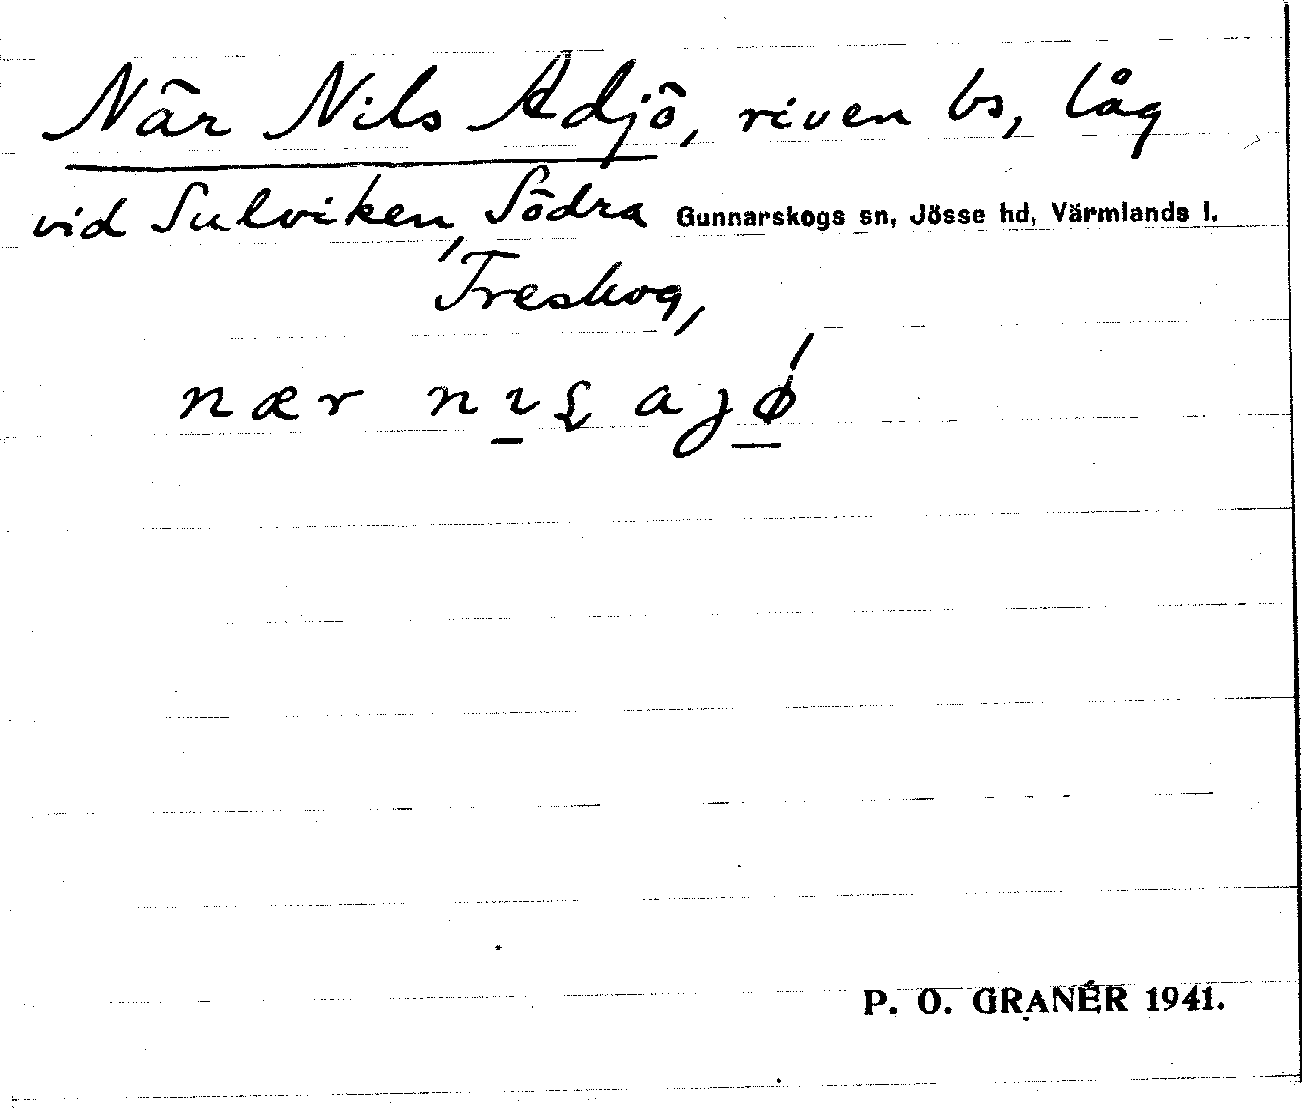 När Nils Adjö, riven bs, låg
vid Sulviken, Södra Gunnarskogs sn, Jösse hd, Värmlands l.
Treskog,
nær
P. O. GRANÉR 1941.